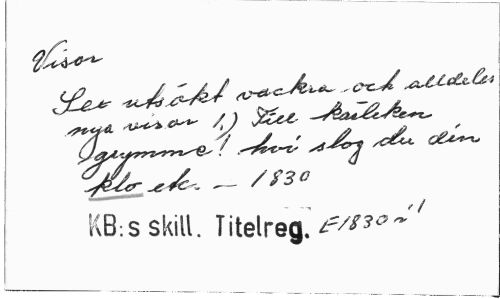 Visor
Sex utsökt vackra och alldeles
nya visor 1.) Till kärleken
grymme! hvi slog du din
klo etc. — 1830
KB:s skill. Titelreg. E1830